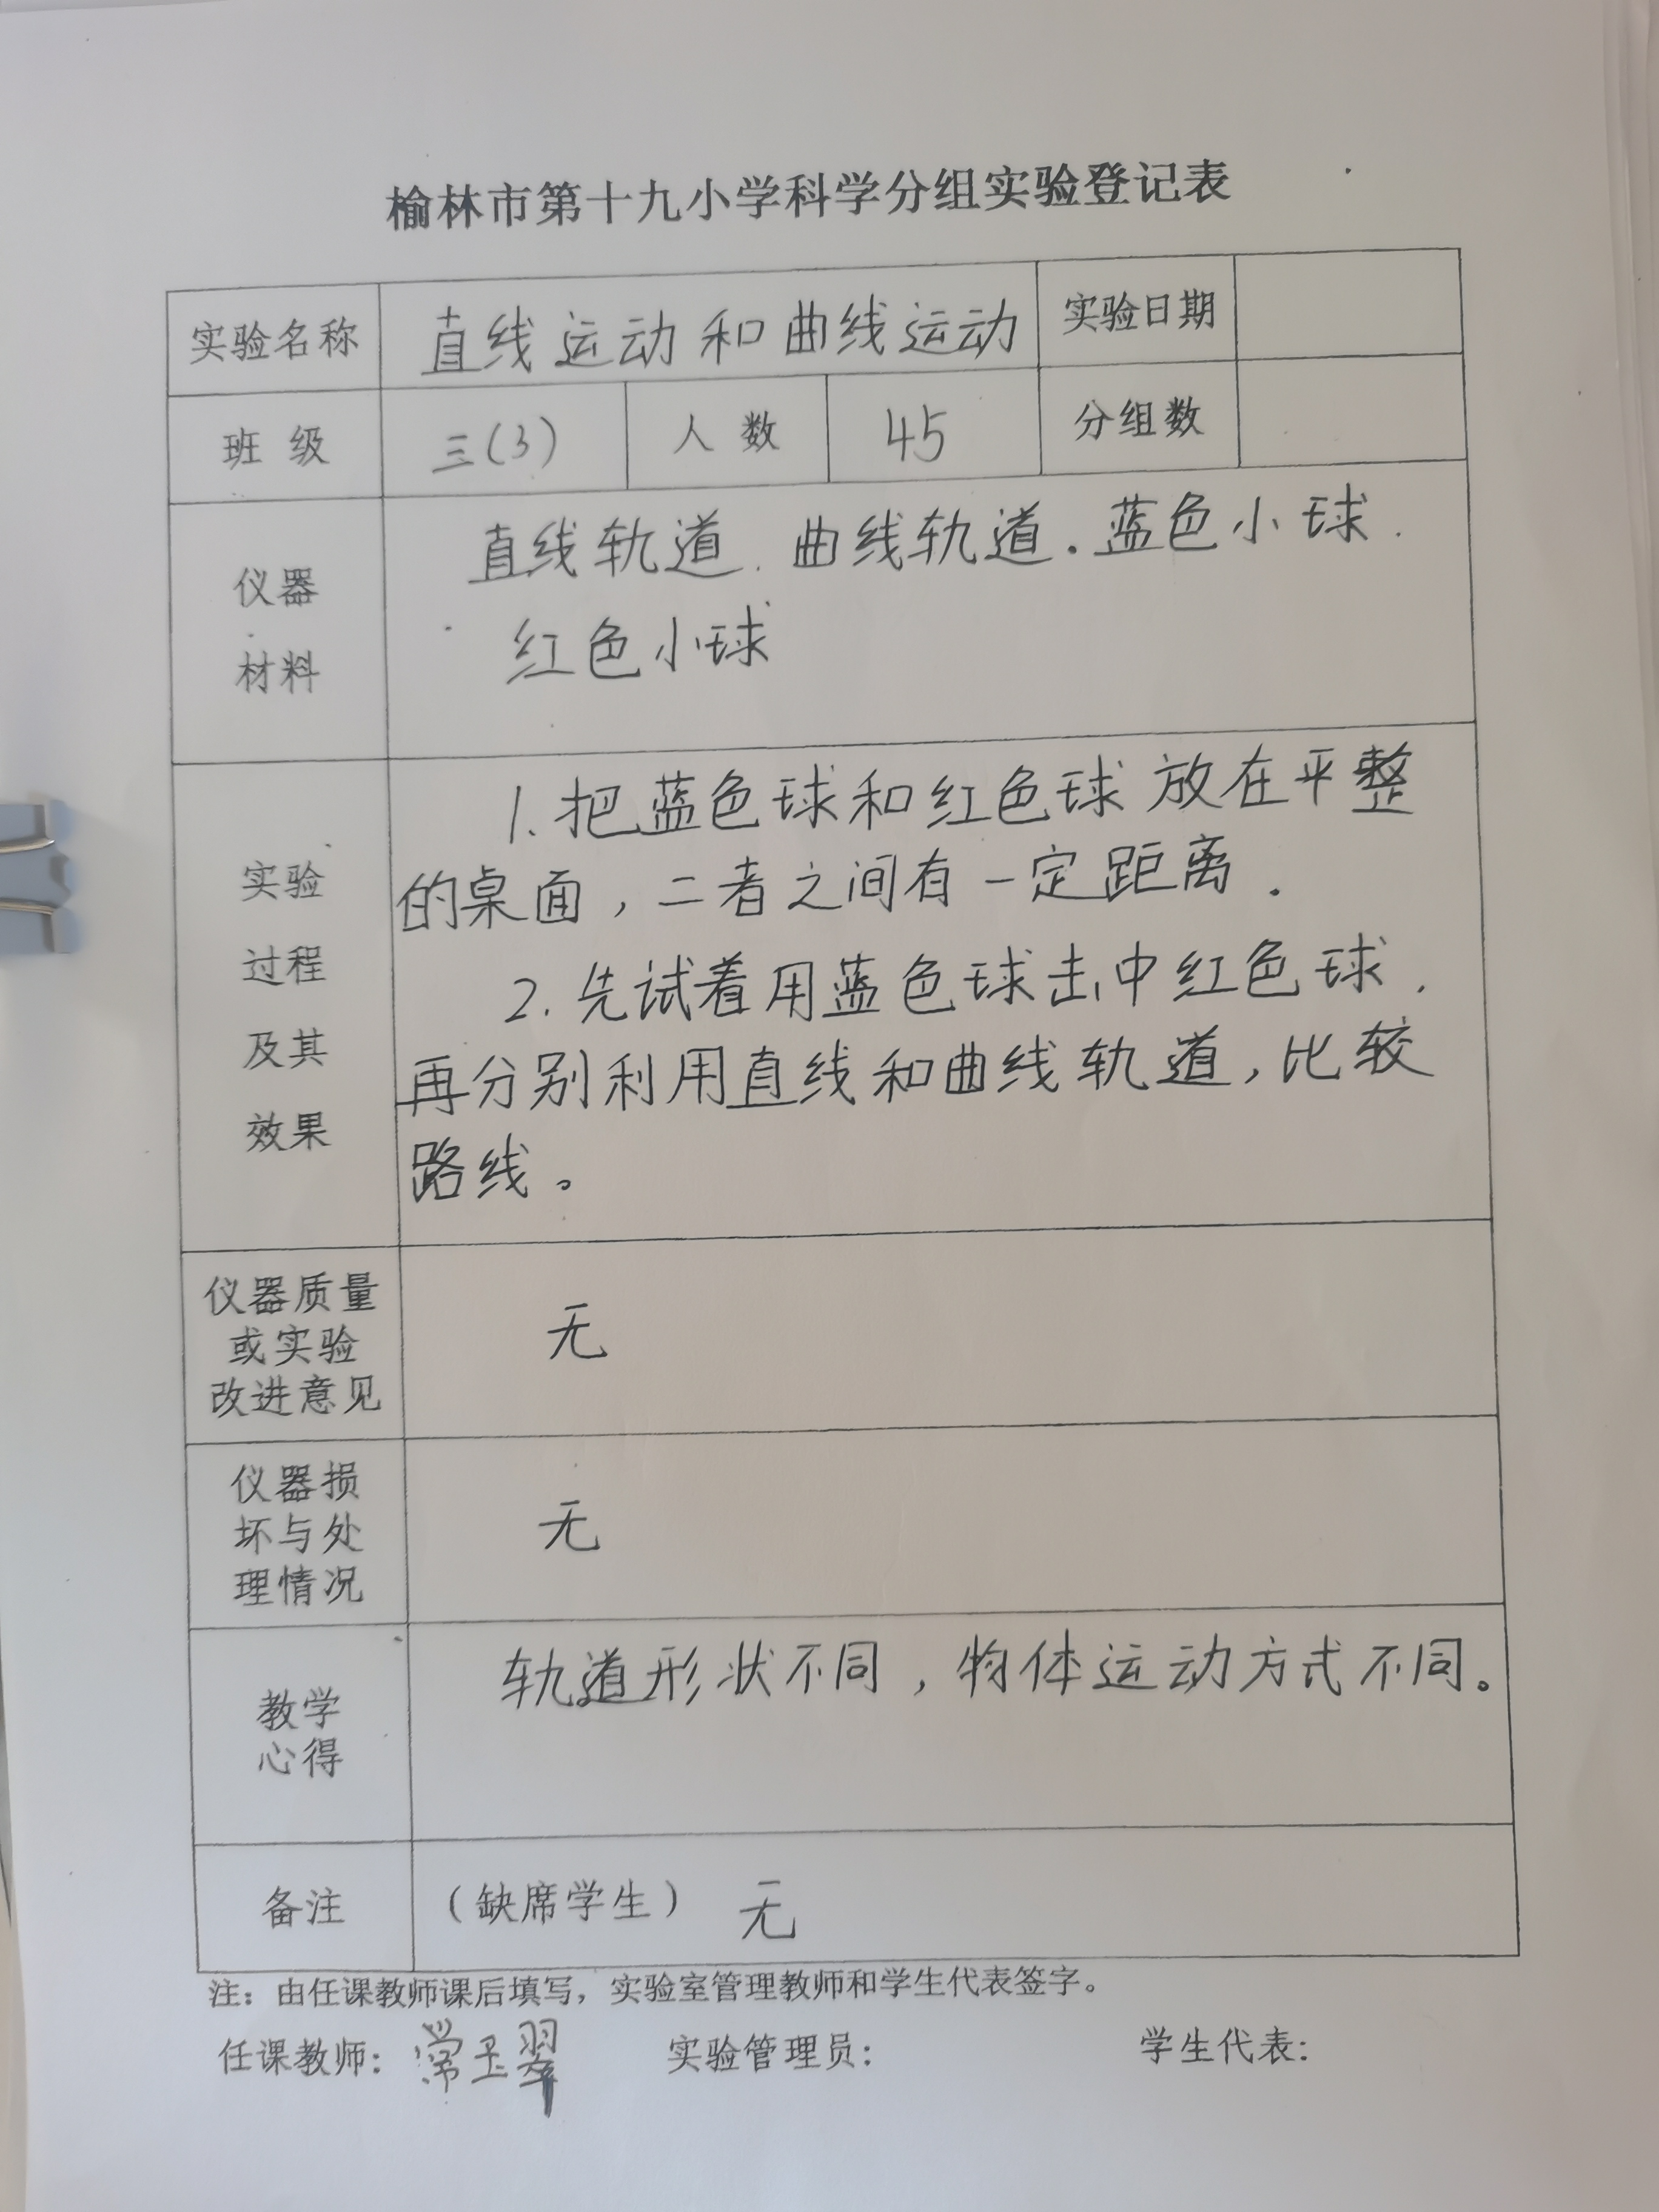 榆林市第十九小学科学分组实验登记表
实验名称 直线运动和曲线运动 实验日期
班 级 三(3) 人 数 45 分组数
仪器
材料
直线轨道.曲线轨道.蓝色小球.
红色小球
实验
过程
及其
效果
1.把蓝色球和红色球放在平整
的桌面，二者之间有一定距离.
2.先试着用蓝色球击中红色球.
再分别利用直线和曲线轨道,比较
路线。
仪器质量
或实验
改进意见
无
仪器损
坏与处
理情况
无
教学
心得
轨道形状不同，物体运动方式不同。
备注 （缺席学生） 无
注：由任课教师课后填写，实验室管理教师和学生代表签字。
任课教师：常玉翠 实验管理员： 学生代表：